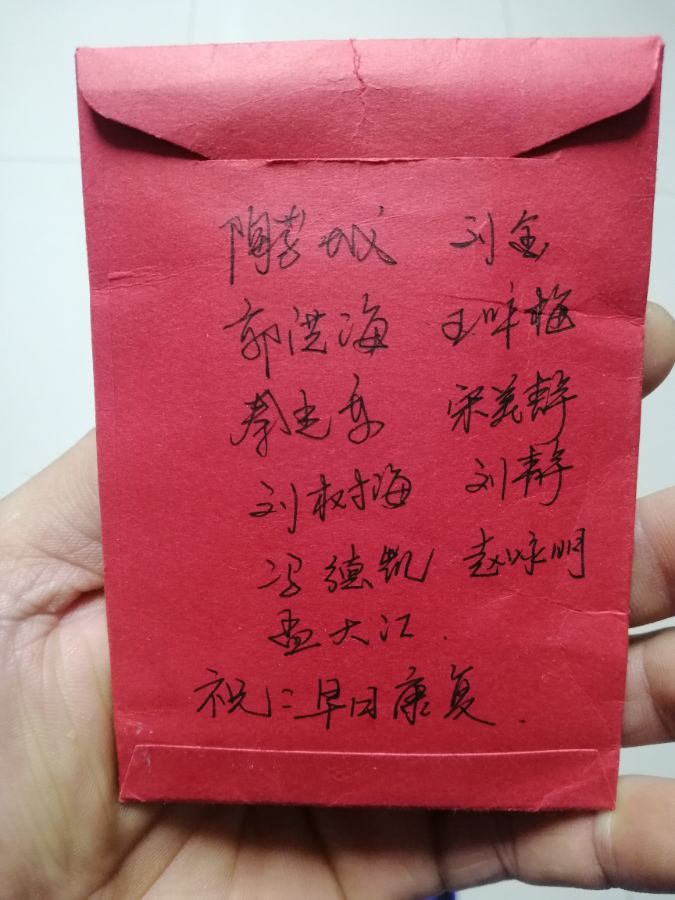 陶 城 刘金
郭洪海 王咏梅
秦志东 宋美静
刘树海 刘静
冯德凯 赵咏明
孟大江.
祝:早日康复.